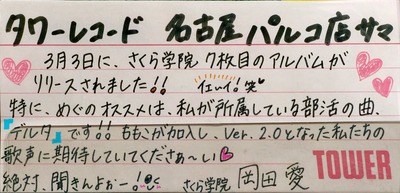 タワーレコード 名古屋パルコ店サマ
3月3日に、さくら学院7枚目のアルバムが
リリースされました!! イェーイ!笑
特に、めぐのオススメは、私が所属している部活の曲、
『デルタ』です!!ももこが加入し、Ver. 2.0となった私たちの
歌声に期待していてくださぁ〜い
絶対、聞きんよぉー! さくら学院 岡田 愛
TOWER